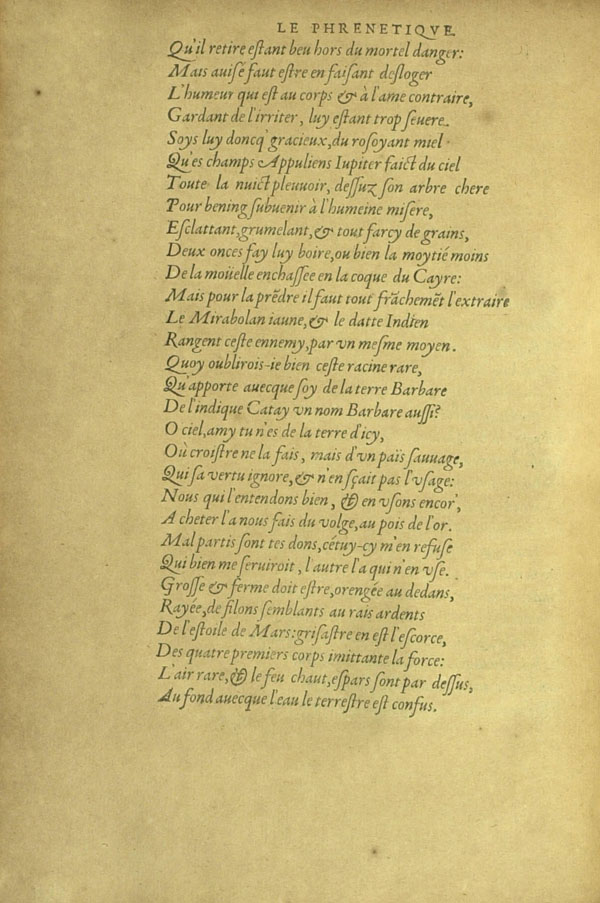 LE PHRENETIQVE.
Qu'il retire eſtant beu hors du mortel danger:
Mais auiſé faut eſtre en faiſant desloger
L'humeur qui eſt au corps & à l'ame contraire,
Gardant de l'irriter, luy eſtant trop ſeuere.
Soys luy doncq' gracieux, du roſoyant miel
Qu'es champs Appuliens Iupiter faict du ciel
Toute la nuict pleuuoir, deſſuz ſon arbre chere
Pour bening ſubuenir à l'humeine miſere,
Eſclattant, grumelant, & tout farcy de grains,
Deux onces fay luy boire, ou bien la moytié moins
De la moüelle enchaſſee en la coque du Cayre:
Mais pour la prẽdre il faut tout frãchemẽt l'extraire
Le Mirabolan iaune, & le datte Indien
Rangent ceſte ennemy, par vn meſme moyen.
Quoy oublirois-ie bien ceſte racine rare,
Qu'apporte auecque ſoy de la terre Barbare
De l'indique Catay vn nom Barbare auſſi?
O ciel, amy tu n'es de la terre d'icy,
Où croiſtre ne la fais, mais d'vn païs ſauuage,
Qui ſa vertu ignore, & n'en ſçait pas l'vſage:
Nous qui l'entendons bien, & en vſons encor',
A cheter l'a nous fais du volge, au pois de l'or.
Mal partis ſont tes dons, cétuy-cy m'en refuſe
Qui bien me ſeruiroit, l'autre l'a qui n'en vſe.
Groſſe & ferme doit eſtre, orengée au dedans,
Rayée, de filons ſemblants au rais ardents
De l'eſtoile de Mars: griſaſtre en eſt l'eſcorce,
Des quatre premiers corps imittante la force:
L'air rare, & le feu chaut, eſpars ſont par deſſus,
Au fond auecque l'eau le terreſtre eſt confus.